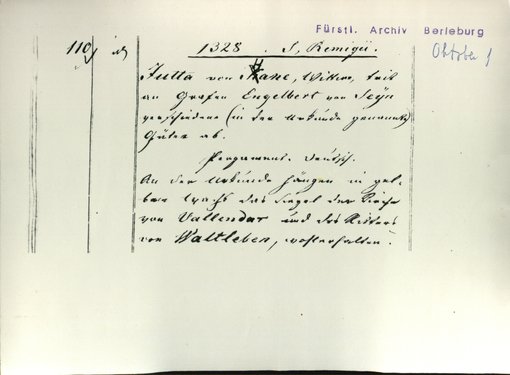 Fürstl. Archiv Berleburg
110
1328. S. Remigii.
Oktober 1
Jutta von Hane, Wittwe, tritt
an Grafen Engelbert von Seyn
verschiedene (in der Urkunde genannte)
Güter ab.
Pergament. Deutsch.
An der Urkunde hängen in gel-
bem Wachs das Siegel der Kirche
von Vallendar und des Ritters
von Waltleben, wohlerhalten.